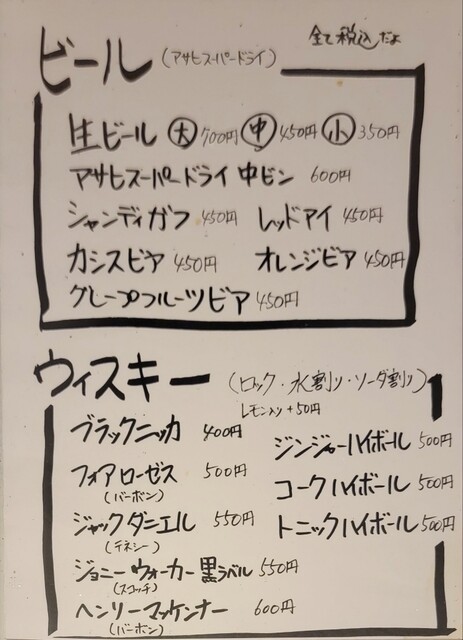 全て税込だよ
ビール (アサヒスーパードライ)
生ビール 大 700円 中 450円 小 350円
アサヒスーパードライ 中ビン 600円
シャンディガフ 450円 レッドアイ 450円
カシスビア 450円 オレンジビア 450円
グレープフルーツビア 450円
ウィスキー (ロック・水割り・ソーダ割り)
レモン入り+50円
ブラックニッカ 400円
ジンジャーハイボール 500円
フォアローゼス 500円
(バーボン)
コークハイボール 500円
ジャックダニエル 550円
(テネシー)
トニックハイボール 500円
ジョニーウォーカー黒ラベル 550円
(スコッチ)
ヘンリーマッケンナー 600円
(バーボン)